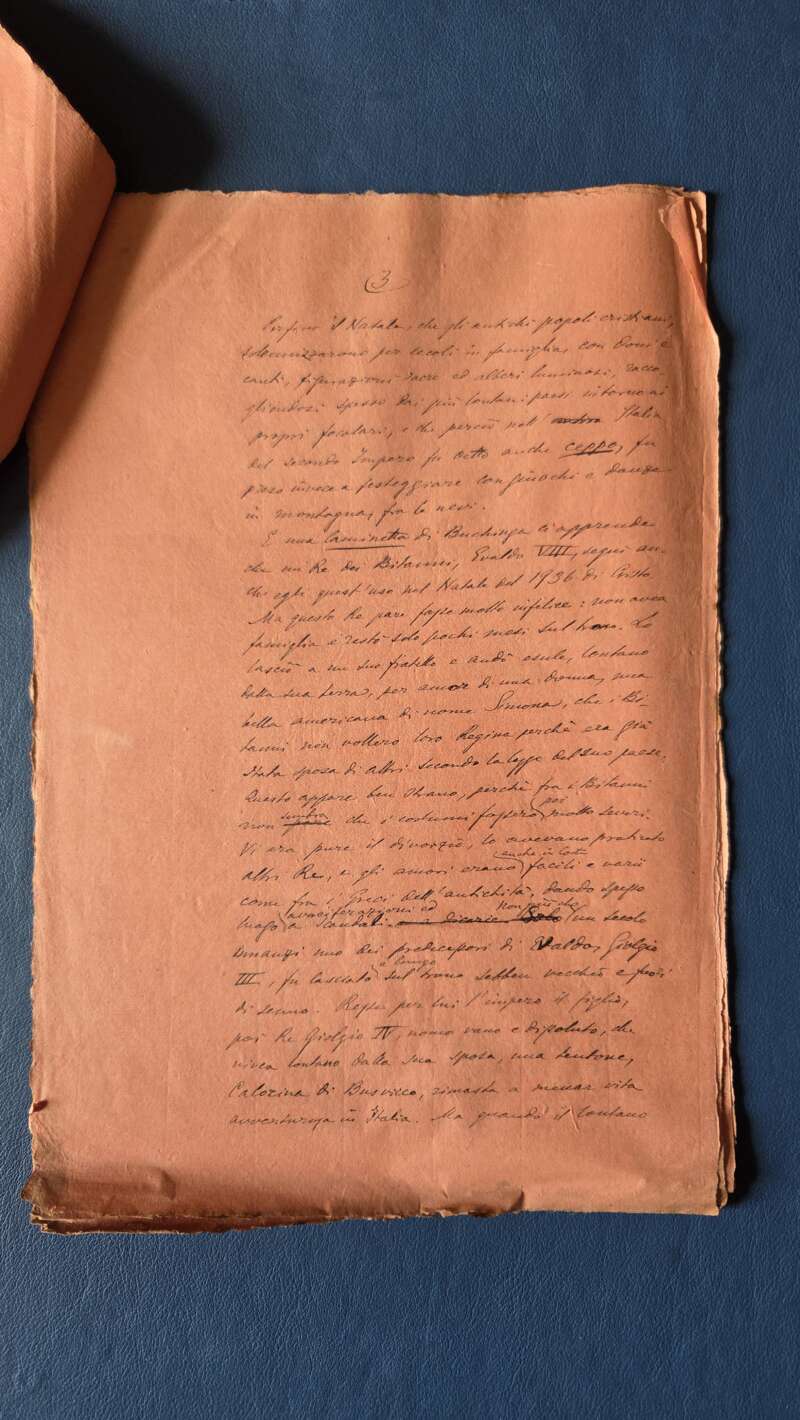 3
Perfino il Natale, che gli antichi popoli cristiani,
solennizzarono per secoli in famiglia, con doni e
canti, figurazioni sacre ed alberi luminosi, racco-
gliendosi spesso dai più lontani paesi intorno ai
propri focolari, e che perciò nell' Italia
del secondo Impero fu detto anche ceppo, fu
preso invece a festeggiare con giuochi e danze
in montagna, fra le nevi.
E una laminetta di Buchinga ci apprende
che un Re dei Bitanni, Evaldo VIII, seguì an-
ch' egli quest'uso nel Natale del 1936 di Cristo.
Ma questo Re pare fosse molto infelice: non aveva
famiglia e restò solo pochi mesi sul trono. Lo
lasciò a un suo fratello e andò esule, lontano
dalla sua terra, per amor di una donna, una
bella americana di nome Simona, che i Bi-
tanni non vollero loro Regina perchè era già
stata sposa di altri secondo la legge del suo paese.
Questo appare ben strano, perchè fra i Bitanni
non sembra che i costumi fossero poi molto severi.
Vi era pure il divorzio, lo avevano praticato
altri Re, e gli amori erano anche in Corte facili e varii
come fra i Greci dell'antichità, dando spesso
luogo a vociferazioni ed scandali. Non più che un secolo
innanzi uno dei predecessori di Evaldo, Giolgio
III, fu lasciato a lungo sul trono sebben vecchio e fuori
di senno. Resse per lui l'impero il figlio,
poi Re Giolgio IV, uomo vano e dissoluto, che
viveva lontano dalla sua sposa, una teutone,
Calorina di Busvicco, rimasta a menar vita
avventurosa in Italia. Ma quando il lontano